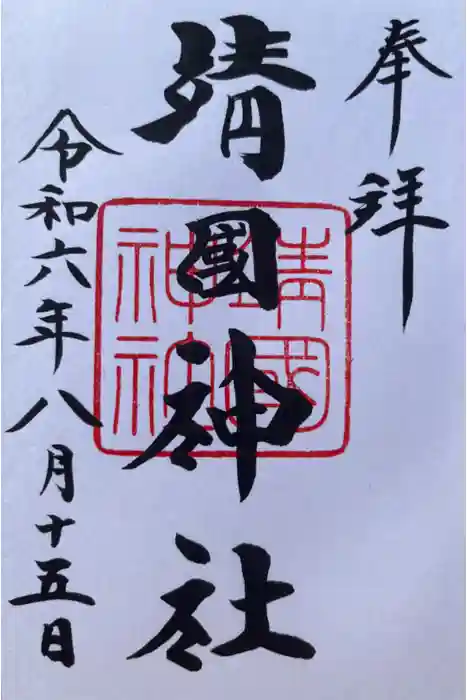 奉拝
靖國神社
靖國
神社
令和六年八月十五日